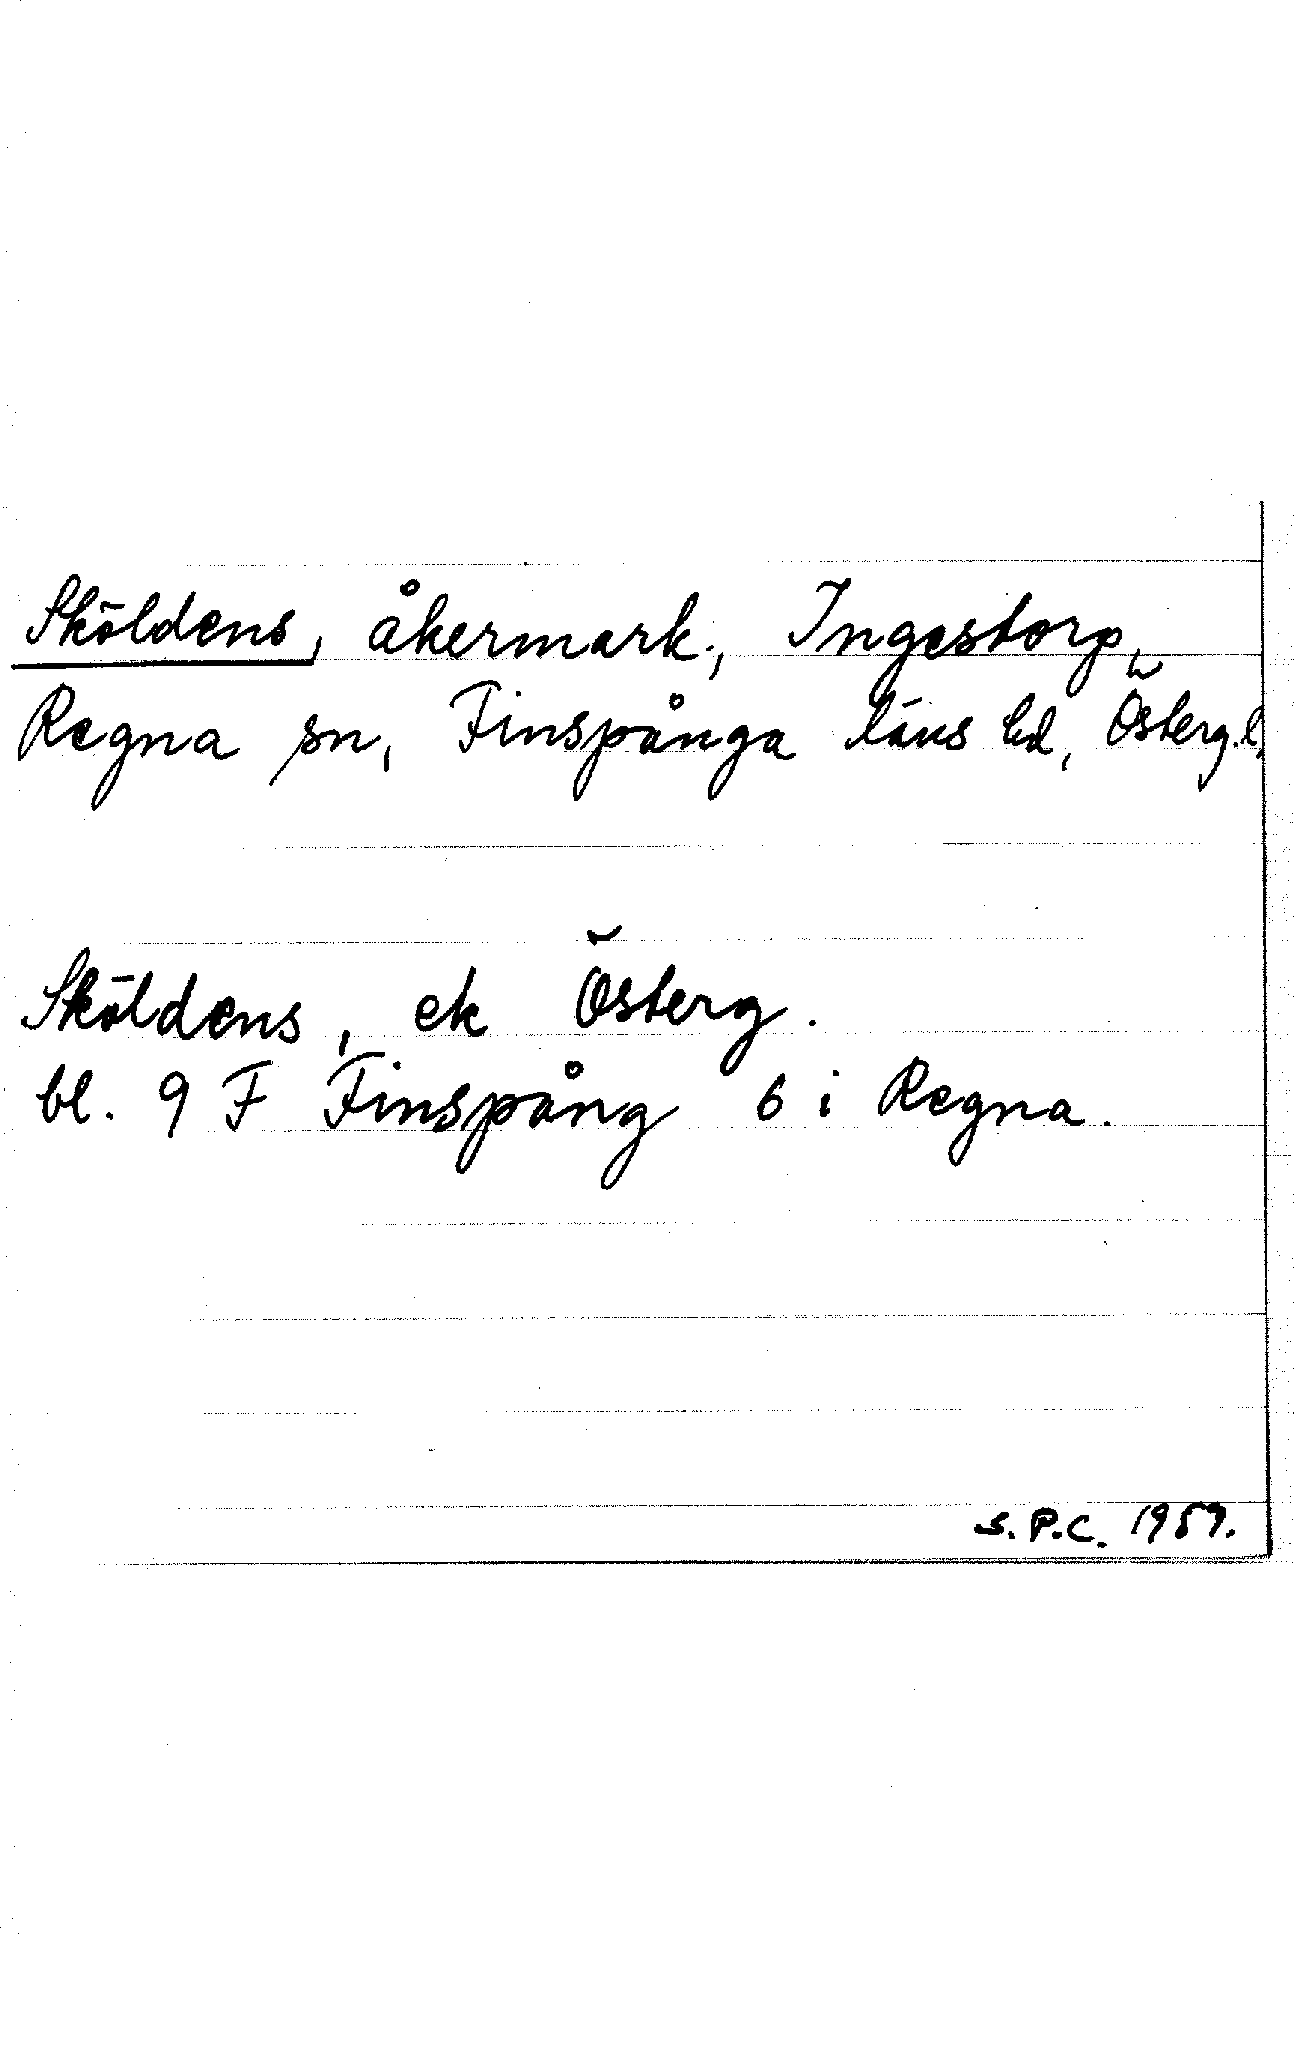 Sköldens, åkermark., Ingestorp,
Regna sn, Finspånga läns hd, Österg.l.
Sköldens, ek Österg.
bl. 9 F Finspång 6 i Regna.
S.P.C. 1959.